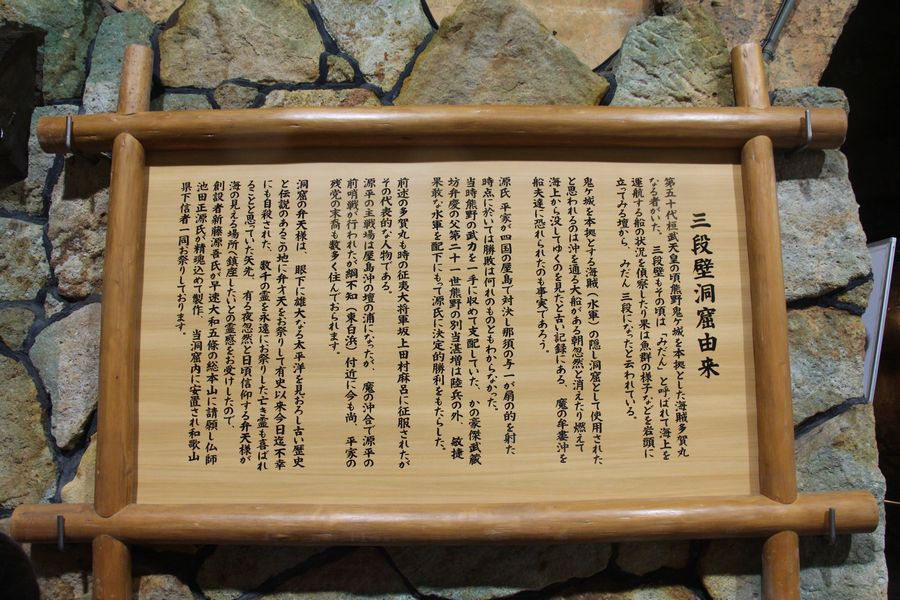 三段壁洞窟由来
第五十代桓武天皇の頃熊野鬼ヶ城を本拠とした海賊多賀丸
なる者がいた。三段壁もその頃は「みだん」と呼ばれて海上を
運航する船の状況を偵察したり果は魚群の様子などを岩頭に
立てみる壇から、みだん三段になったと云われている。
鬼ヶ城を本拠とする海賊（水軍）の隠し洞窟として使用された
と思われるのは沖を通る大船がある朝忽然と消えたり燃えて
海上から没してゆくのを見たと古い記録にある、魔の牟婁沖を
船夫達に恐れられたのも事実であろう。
源氏、平家が四国の屋島で対決し那須の与一が扇の的を射た
時点に於いては勝敗は何れのものともわからなかった。
当時熊野の武力を一手に収めて支配していた、かの豪傑武蔵
坊弁慶の父第二十一世熊野の別当湛増は陸兵の外、敏捷
果敢な水軍を配下にもって源氏に決定的勝利をもたらした。
前述の多賀丸も時の征夷大将軍坂上田村麻呂に征服されたが
その代表的な人物である。
源平の主戦場は屋島沖の壇の浦になったが、魔の沖合で源平の
前哨戦が行われたか綱不知（東白浜）付近に今も尚、平家の
残党の末裔も数多く住んでおられます。
洞窟の弁天様は、眼下に雄大なる太平洋を見おろし古い歴史
と伝説のあるこの地に弁才天をお祭りして有史以来今日迄不幸
にも自殺された、数千の霊を永遠にお祭りした亡き霊も喜ばれ
ることと思っていた矢先、有る夜忽然と日頃信仰する弁天様が
海の見える場所へ鎮座したいとの霊惑をお受けしたので、
創設者新藤源吾氏が早速大和五條の総本山に請願し仏師
池田正源氏が精魂込めて製作、当洞窟内に安置され和歌山
県下信者一同お祭りしております。